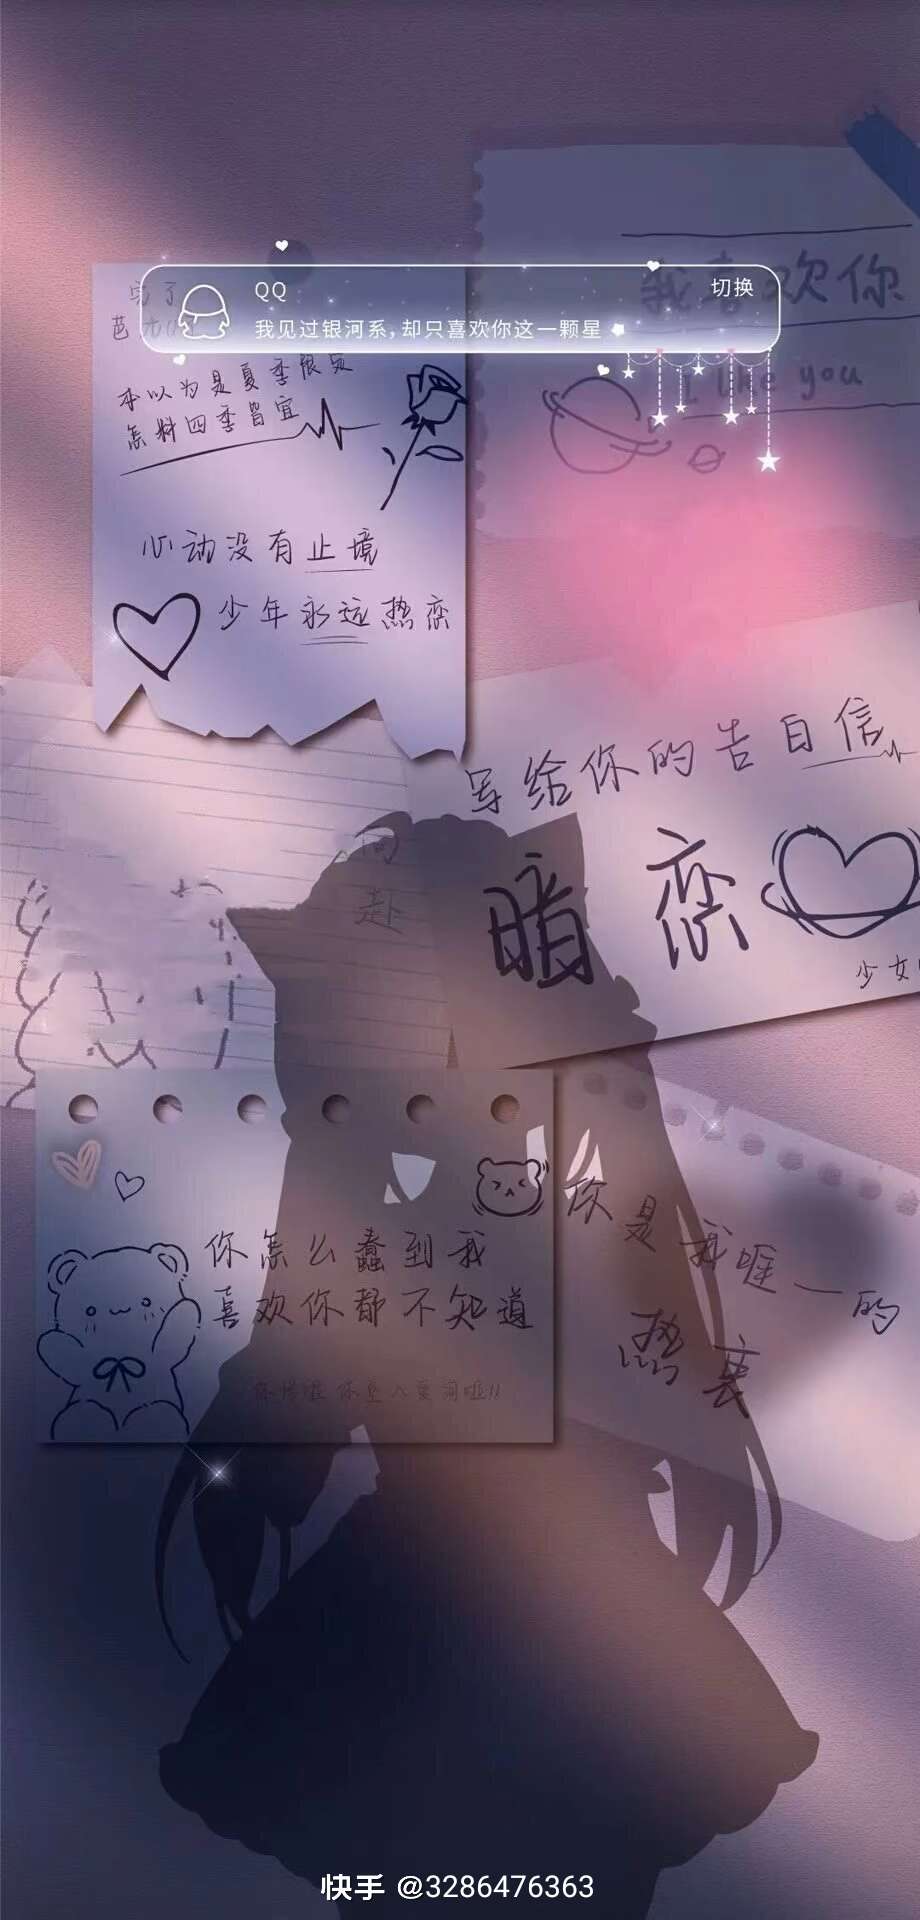 QQ
切换
我见过银河系,却只喜欢你这一颗星
我喜欢你
I like you
本以为是夏季限定
怎料四季皆宜
心动没有止境
少年永远热恋
写给你的告白信
暗恋
少女
向
赴
你怎么蠢到我
喜欢你都不知道
你是我唯一的
热衷
快手 @3286476363